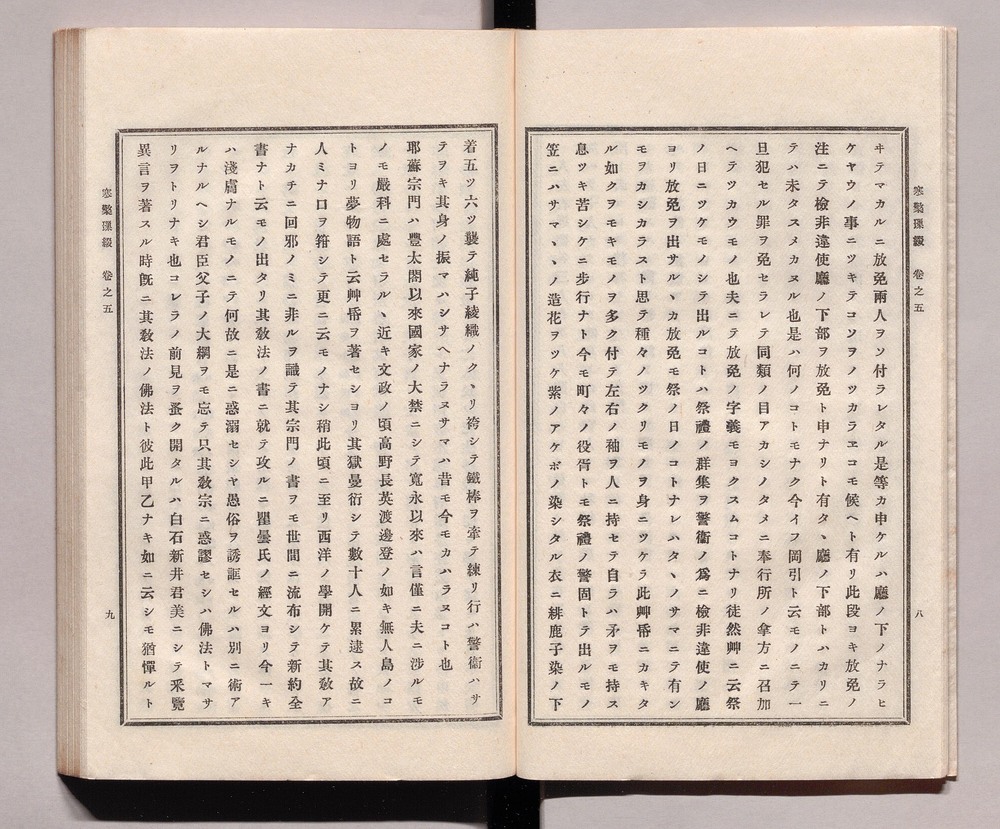 寒檠璅綴 卷之五
八
ヰテマカルニ放免兩人ヲソ付ラレタル是等カ申ケルハ廳ノ下ノナラヒ
ケヤウノ事ニツキテコソヲノツカラヱコモ候ヘト有リ此段ヨキ放免ノ
注ニテ檢非違使廳ノ下部ヲ放免ト申ナリト有タヽ廳ノ下部トハカリニ
テハ未タスメカヌル也是ハ何ノコトモナク今イフ岡引ト云モノニテ一
旦犯セル罪ヲ免セラレテ同類ノ目アカシノタメニ奉行所ノ拿方ニ召加
ヘテツカウモノ也夫ニテ放免ノ字義モヨクスムコトナリ徒然艸ニ云祭
ノ日ニツケモノシテ出ルコトハ祭禮ノ群集ヲ警衞ノ爲ニ檢非違使ノ廳
ヨリ放免ヲ出サルヽカ放免モ祭ノ日ノコトナレハタヽノサマニテ有ン
モヲカシカラスト思テ種々ノツクリモノヲ身ニツケラ此艸昏ニカキタ
ル如クヲモキモノヲ多ク付テ左右ノ袖ヲ人ニ持セテ自ラハ矛ヲモ持ス
息ツキ苦シケニ步行ナト今モ町々ノ役胥トモ祭禮ノ警固トテ出ルモノ
笠ニハサマヽヽノ造花ヲツケ紫ノアケボノ染シタル衣ニ緋鹿子染ノ下
着五ツ六ツ襲テ純子綾織ノクヽリ袴シテ鐵棒ヲ牽テ練リ行ハ警衞ハサ
テヲキ其身ノ振マハシサヘナラヌサマハ昔モ今モカハラヌコト也
耶蘇宗門ハ豐太閤以來國家ノ大禁ニシテ寬永以來ハ言僅ニ夫ニ涉ルモ
ノモ嚴科ニ處セラルヽ近キ文政ノ頃高野長英渡邊登ノ如キ無人島ノコ
トヨリ夢物語ト云艸昏ヲ著セシヨリ其獄曼衍シテ數十人ニ累逮ス故ニ
人ミナ口ヲ箝シテ更ニ云モノナシ稍此頃ニ至リ西洋ノ學開ケテ其敎ア
ナカチニ回邪ノミニ非ルヲ識テ其宗門ノ書ヲモ世間ニ流布シテ新約全
書ナト云モノ出タリ其敎法ノ書ニ就テ攻ルニ瞿曇氏ノ經文ヨリ今一キ
ハ淺膚ナルモノニテ何故ニ是ニ惑溺セシヤ愚俗ヲ誘誆セルハ別ニ術ア
ルナルヘシ君臣父子ノ大綱ヲモ忘テ只其敎宗ニ惑謬セシハ佛法トマサ
リヲトリナキ也コレラノ前見ヲ蚤ク開タルハ白石新井君美ニシテ釆覽
異言ヲ著スル時旣ニ其敎法ノ佛法ト彼此甲乙ナキ如ニ云シモ猶憚ルト
寒檠璅綴 卷之五
九